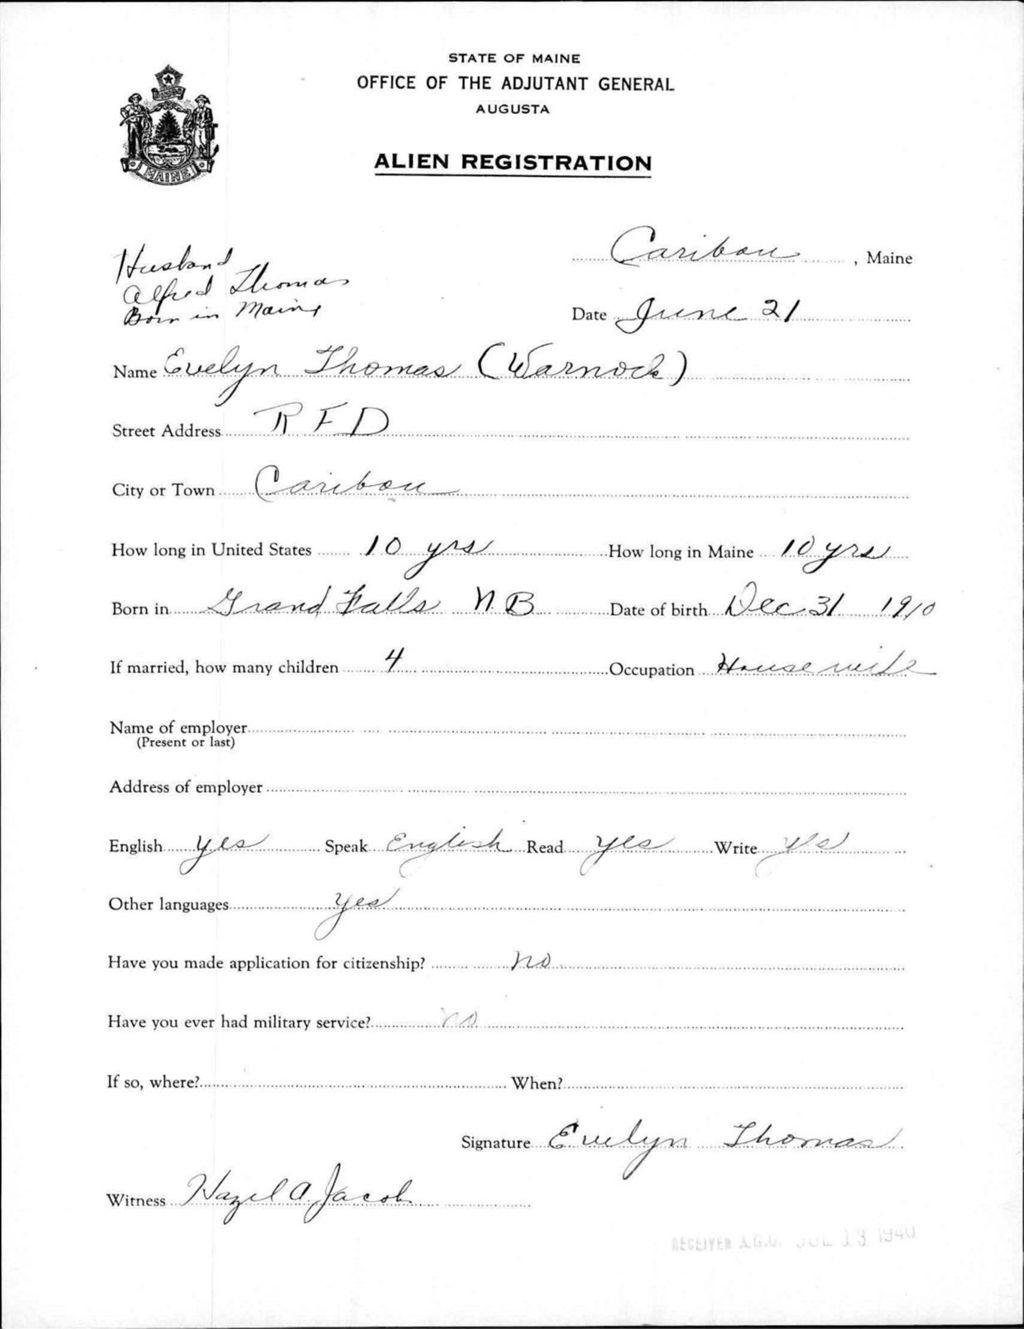 STATE OF MAINE
OFFICE OF THE ADJUTANT GENERAL
AUGUSTA
ALIEN REGISTRATION
MAINE
Husband
Alfred Thomas
Born in Maine
Caribou, Maine
Date June 21
Name Evelyn Thomas (Warnock)
Street Address R F D
City or Town Caribou
How long in United States 10 yrs How long in Maine 10 yrs
Born in Grand Falls N B Date of birth Dec 31 1910
If married, how many children 4 Occupation Housewife
Name of employer
(Present or last)
Address of employer
English yes Speak English Read yes Write yes
Other languages yes
Have you made application for citizenship? no
Have you ever had military service? no
If so, where? When?
Signature Evelyn Thomas
Witness Hazel A. Jacob
RECEIVED A.G.O. JUL 13 1940